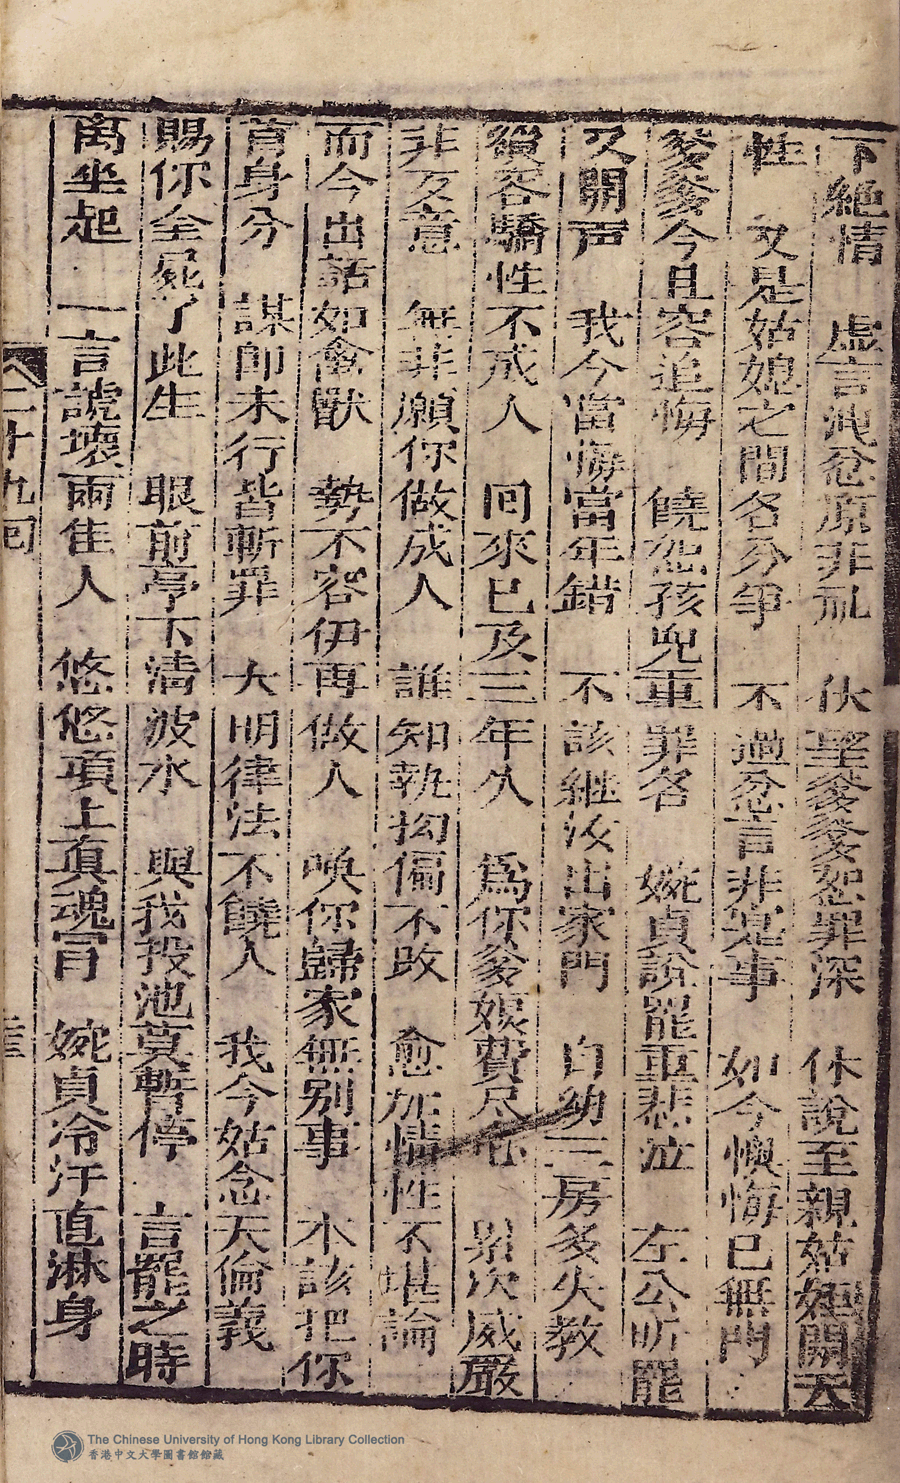 下絶情　虚言㴋忿原非乱　伏望爹爹恕罪深　休說至親姑妲閧天
性　又是姑媳之間各分爭　不過忿言非寃事　如今懊悔已無門
爹爹今且容追悔　饒恕孩兒重罪名　婉貞說罷重悲泣　左公听罷
又開声　我今當悔當年錯　不該继汝出家門　自幼三房多失教
縱容驕性不成人　囘來已及三年久　爲你爹娘費尽心　累次威嚴
非歹意　無非願你做成人　誰知執拗偏不改　愈加情性不堪論
而今出話如禽獸　勢不容伊再做人　喚你歸家無别事　本該把你
首身分　謀師未行皆斬罪　大明律法不饒人　我今姑念天倫義
賜你全屍了此生　眼前亭下清波水　與我投池莫暫停　言罷之時
离坐起　一言諕壞兩隹人　悠悠項上真魂冒　婉貞冷汗直淋身
二十九回
The Chinese University of Hong Kong Library Collection
香港中文大學圖書館館藏